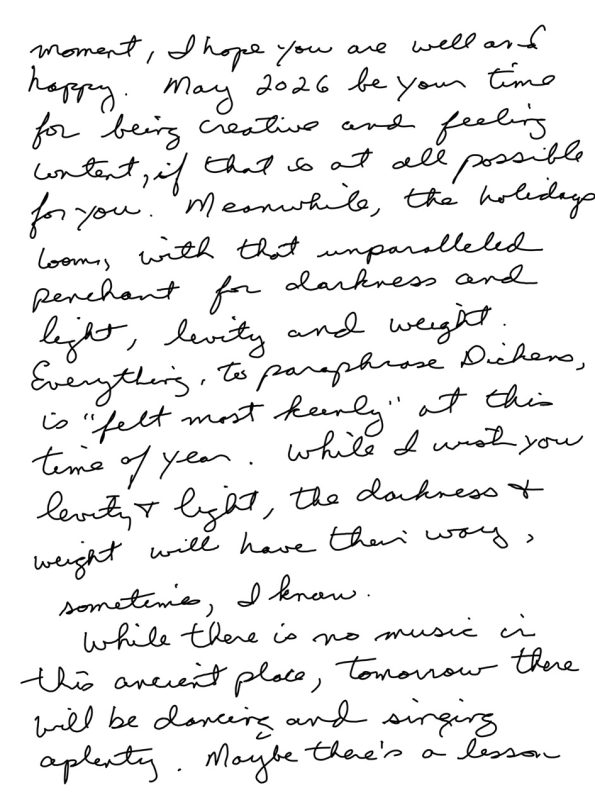 moment, I hope you are well and
happy. May 2026 be your time
for being creative and feeling
content, if that is at all possible
for you. Meanwhile, the holidays
loom, with that unparalleled
penchant for darkness and
light, levity and weight.
Everything, to paraphrase Dickens,
is "felt most keenly" at this
time of year. While I wish you
levity & light, the darkness &
weight will have their way,
sometimes, I know.
While there is no music in
this ancient place, tomorrow there
will be dancing and singing
aplenty. Maybe there's a lesson